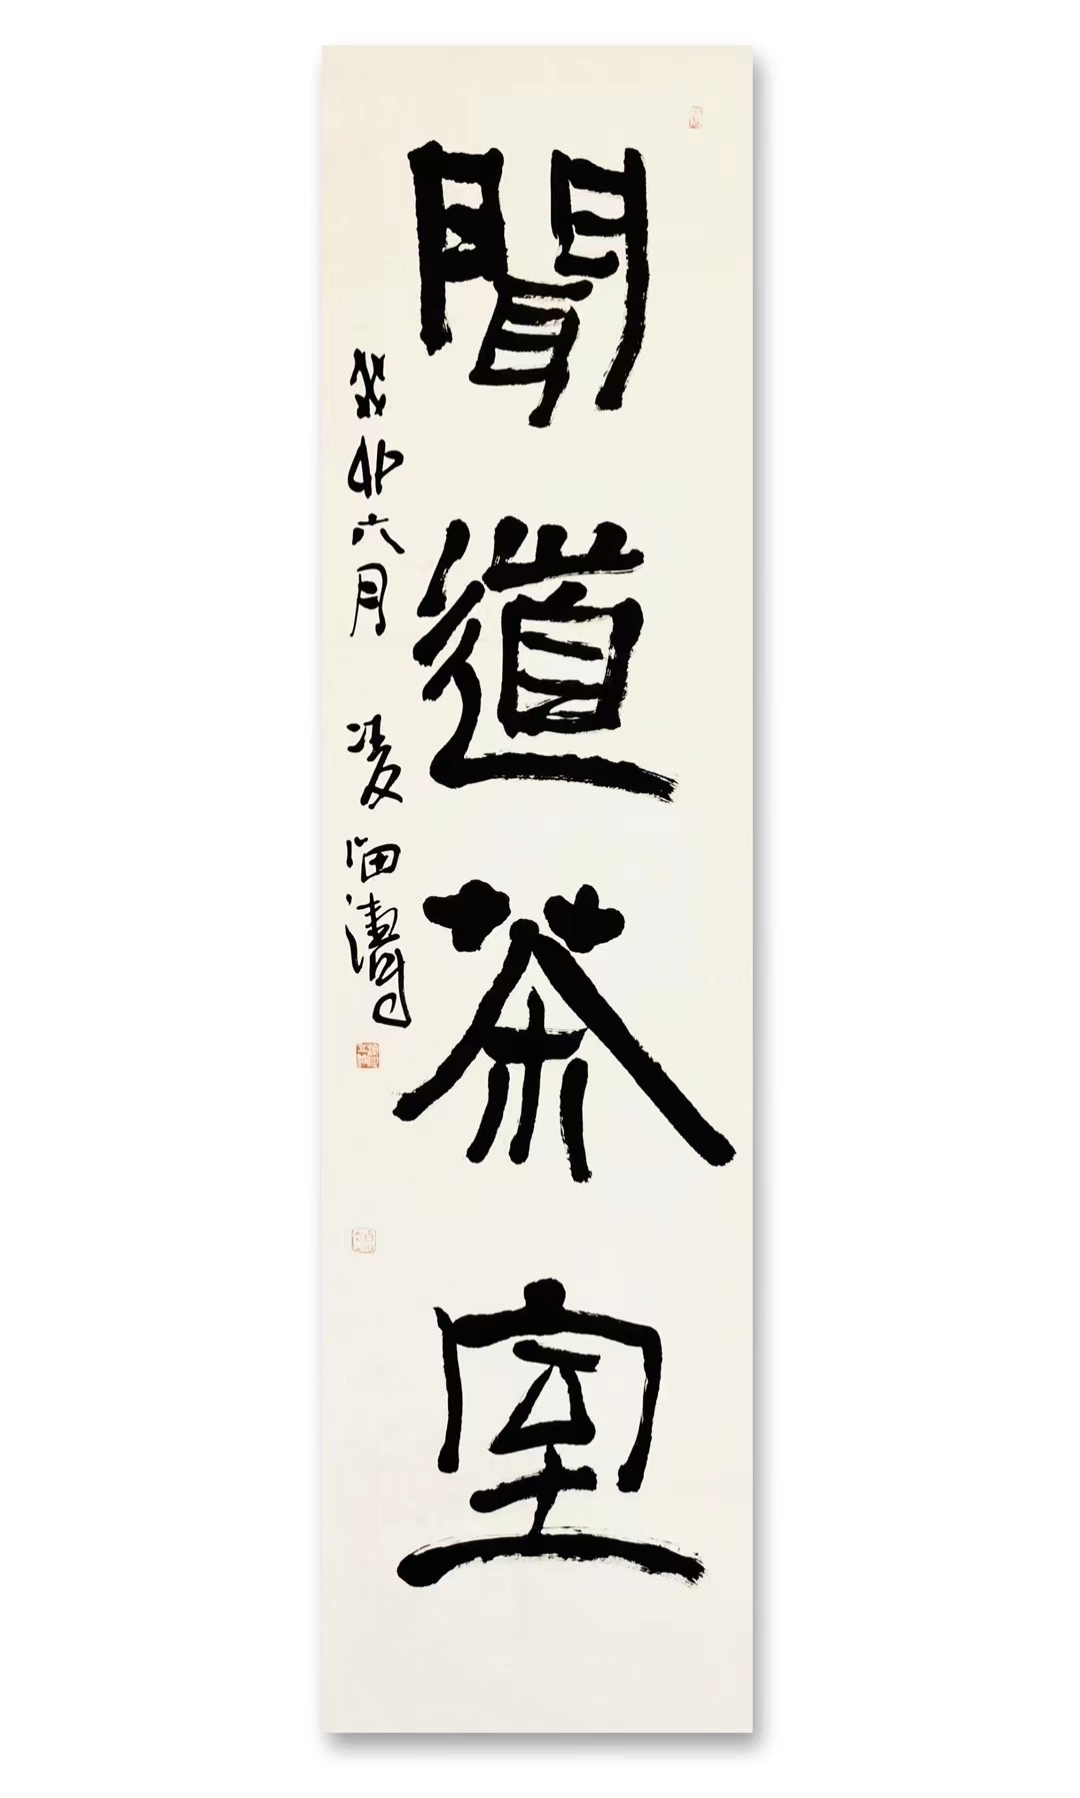 聞道茶室
癸卯六月 凌海濤